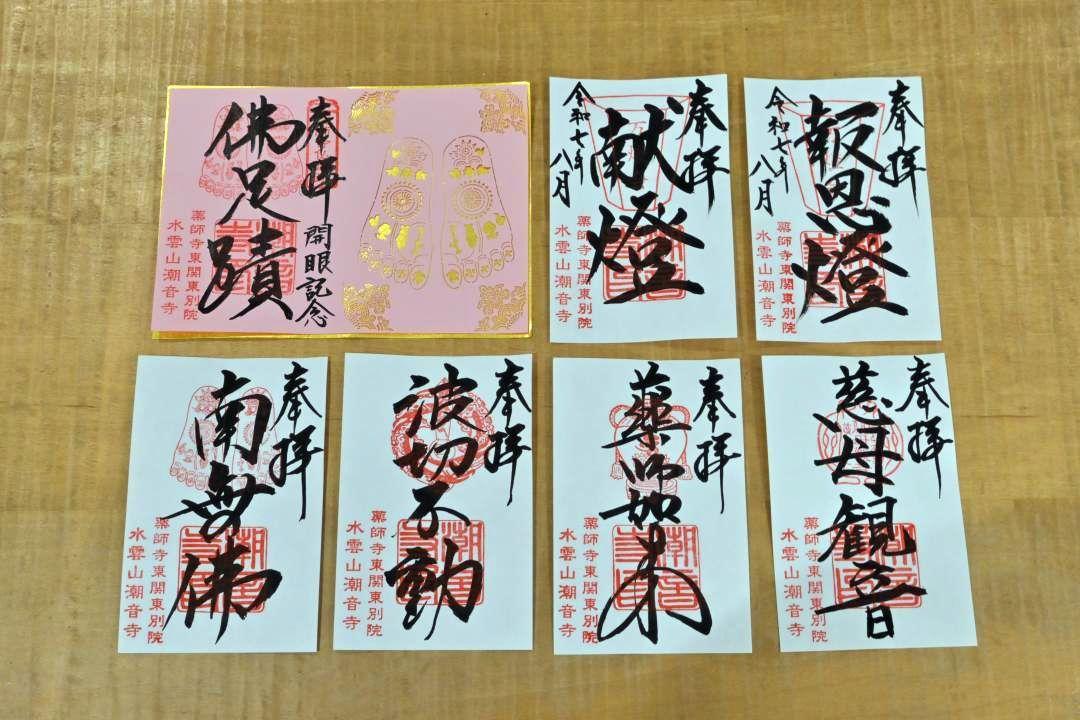 奉拝
開眼記念
佛足蹟
薬師寺東関東別院
水雲山潮音寺
奉拝
献燈
令和七年
八月
薬師寺東関東別院
水雲山潮音寺
奉拝
報恩燈
令和七年
八月
薬師寺東関東別院
水雲山潮音寺
奉拝
南無佛
薬師寺東関東別院
水雲山潮音寺
奉拝
波切不動
薬師寺東関東別院
水雲山潮音寺
奉拝
薬師如来
薬師寺東関東別院
水雲山潮音寺
奉拝
慈母観音
薬師寺東関東別院
水雲山潮音寺